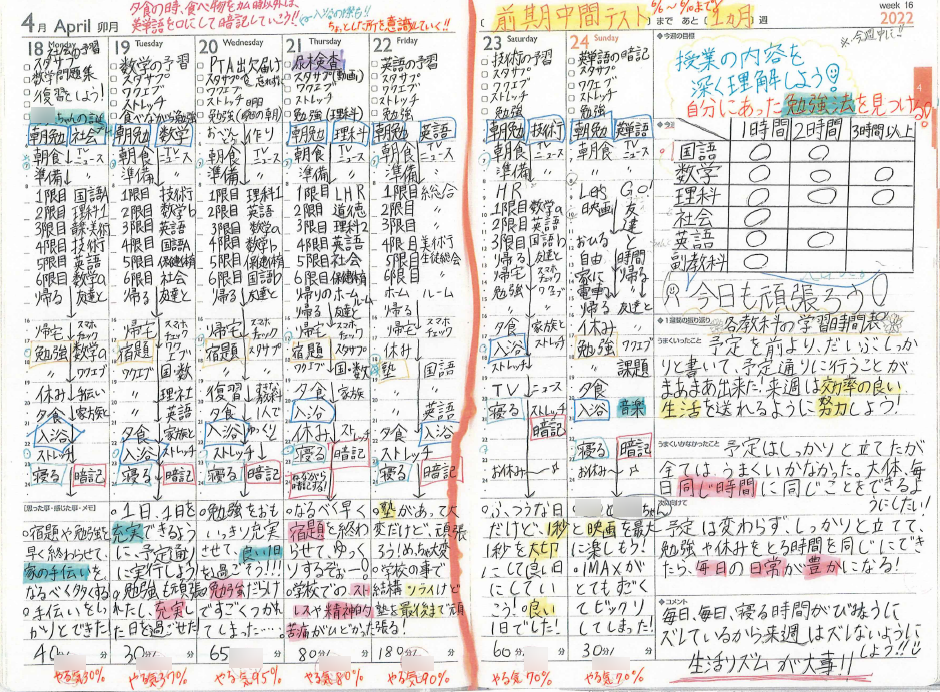 4月 April 卯月
夕食の時、食べ物をかむ時以外に
英単語を口にして暗記していこう!!
ちょっとした所を意識していく!!
前期中間テスト まで あと 1ヵ月 週
week 16
2022
18 Monday
スタサプ
数学問題集
復習しよう!
朝勉 社会
朝食 TVニュース
準備 〃
1限目 国語A
2限目 理科1
3限目
4限目 技術
5限目 英語
6限目 数学a
帰る 友達と
帰宅 スマホチェック
勉強 数学a
〃 ワクエブ
休み 手伝い
夕食 家族と
入浴
ストレッチ
寝る 暗記
[思った事・感じた事・メモ]
宿題や勉強を
早く終わらせて、
家の手伝いを
なるべく多くする
手伝いをしっ
かりとできた
40分
やる気30%
19 Tuesday
数学の予習
スタサプ
ワクエブ
ストレッチ
食べながら勉強
朝勉 数学
朝食 TVニュース
準備 〃
1限目 技術
2限目 数学b
3限目 英語
4限目 国語A
5限目 保健体育
6限目 社会
帰る 友達と
帰宅 スマホチェック
宿題 ワクエブ
〃 国・数
〃 理科
〃 英語
夕食 家族と
入浴 ストレッチ
寝る 暗記
1日、1日を
充実できるよう
に、予定通り
に実行しよう!
勉強も頑張
れたし、充実し
た日を過ごせた!
30分
やる気37%
20 Wednesday
PTA出欠届け
スタサプ 忘れずに
ワクエブ
ストレッチ
勉強(明日の朝)
おべんとう 作り
朝食 TVニュース
準備 〃
1限目 理科1
2限目 英語
3限目 数学a
4限目 数学b
5限目 保健体育
6限目 国語b
帰る 友達と
帰宅 スマホチェック
勉強 スタサプ
復習
夕食 1人で
入浴 ゆっくり
ストレッチ
寝る 暗記
勉強をおも
いっきり充実
させて、良い1日
を過ごそう!!!
勉強だけ
ですごくつかれ
てしまった…。
65分
やる気95%
21 Thursday
尿検査
スタサプ(動画)
ワクエブ
ストレッチ
勉強(理科)
朝勉 理科
朝食 TVニュース
準備 〃
1限目 LHR
2限目 道徳
3限目 理科2
4限目 英語
5限目 保健体育
6限目 数学a
帰りのホームルーム
帰る 友達と
帰宅 スマホチェック
宿題 スタサプ
〃 国・数
夕食 家族
入浴
休み ストレッチ
寝る 暗記
なるべく早く
宿題を終わ
らせて、ゆっく
りするぞぉ〜!
学校でのスト
レスや精神的
苦痛がひどかった
80分
やる気80%
22 Friday
英語の予習
スタサプ
ワクエブ
ストレッチ
勉強
朝勉 英語
朝食 TVニュース
準備 〃
1限目 総合
2限目 〃
3限目 〃
4限目 美術
5限目 生徒総会
6限目 〃
ホームルーム
帰る 友達と
帰宅 スマホチェック
休み
塾 国語
〃 〃
〃 英語
夕食 入浴
ストレッチ
寝る 暗記
塾があって大
変だけど、頑張
ろう!めちゃ大変
学校の事で
結構ツライけど
塾を最後まで頑
張る!
180分
やる気90%
23 Saturday
技術の予習
スタサプ
ワクエブ
ストレッチ
勉強
朝勉 技術
朝食 TVニュース
準備 〃
HR 〃
1限目 数学a
2限目 英語
3限目 国語b
帰る 友達
帰宅 スマホチェック
勉強 ワクエブ
夕食 家族と
入浴
ストレッチ
TV ニュース
寝る ストレッチ
暗記
お休み
ふつうな日
だけど、1秒
1秒を大切
にして良い日
にしてい
こう!良い
1日でした!
60分
やる気70%
24 Sunday
英単語の暗記
スタサプ
ワクエブ
ストレッチ
勉強
朝勉 英単語
朝食 TVニュース
準備 〃
Let's GO!
映画 友達と
おひる
自由時間
家に帰る
電車
帰る 友達と
休み 〃
勉強 ワクエブ
〃 課題
夕食
入浴 音楽
寝る 暗記
お休み
と映画を最大
に楽しもう!
IMAXが
とてもすごく
てビックリ
してしまった!
30分
やる気70%
◆今週の目標
※今週中に!!
授業の内容を
深く理解しよう!
自分にあった勉強法を見つける。!
1時間 2時間 3時間以上
国語 ○ ○
数学 ○ ○ ○
理科 ○ ○ ○
社会 ○
英語 ○ ○
副教科 ○
今日も頑張ろう!
◆1週間の振り返り
各教科の学習時間表
うまくいったこと
予定を前より、だいぶしっか
りと書いて、予定通りに行うことが
まあまあ出来た!来週は効率の良い
生活を送れるように努力しよう!
うまくいかなかったこと
予定はしっかりと立てたが
全ては、うまくいかなかった。大体、毎
日同じ時間に同じことをできるよ
うにしたい!
予定は変わらず、しっかりと立てて、
勉強や休みをとる時間を同じにでき
たら、毎日の日常が豊かになる!
◆コメント
毎日、毎日、寝る時間がびみょうに
ズレているから来週はズレないように
しよう!!
生活リズムが大事!!